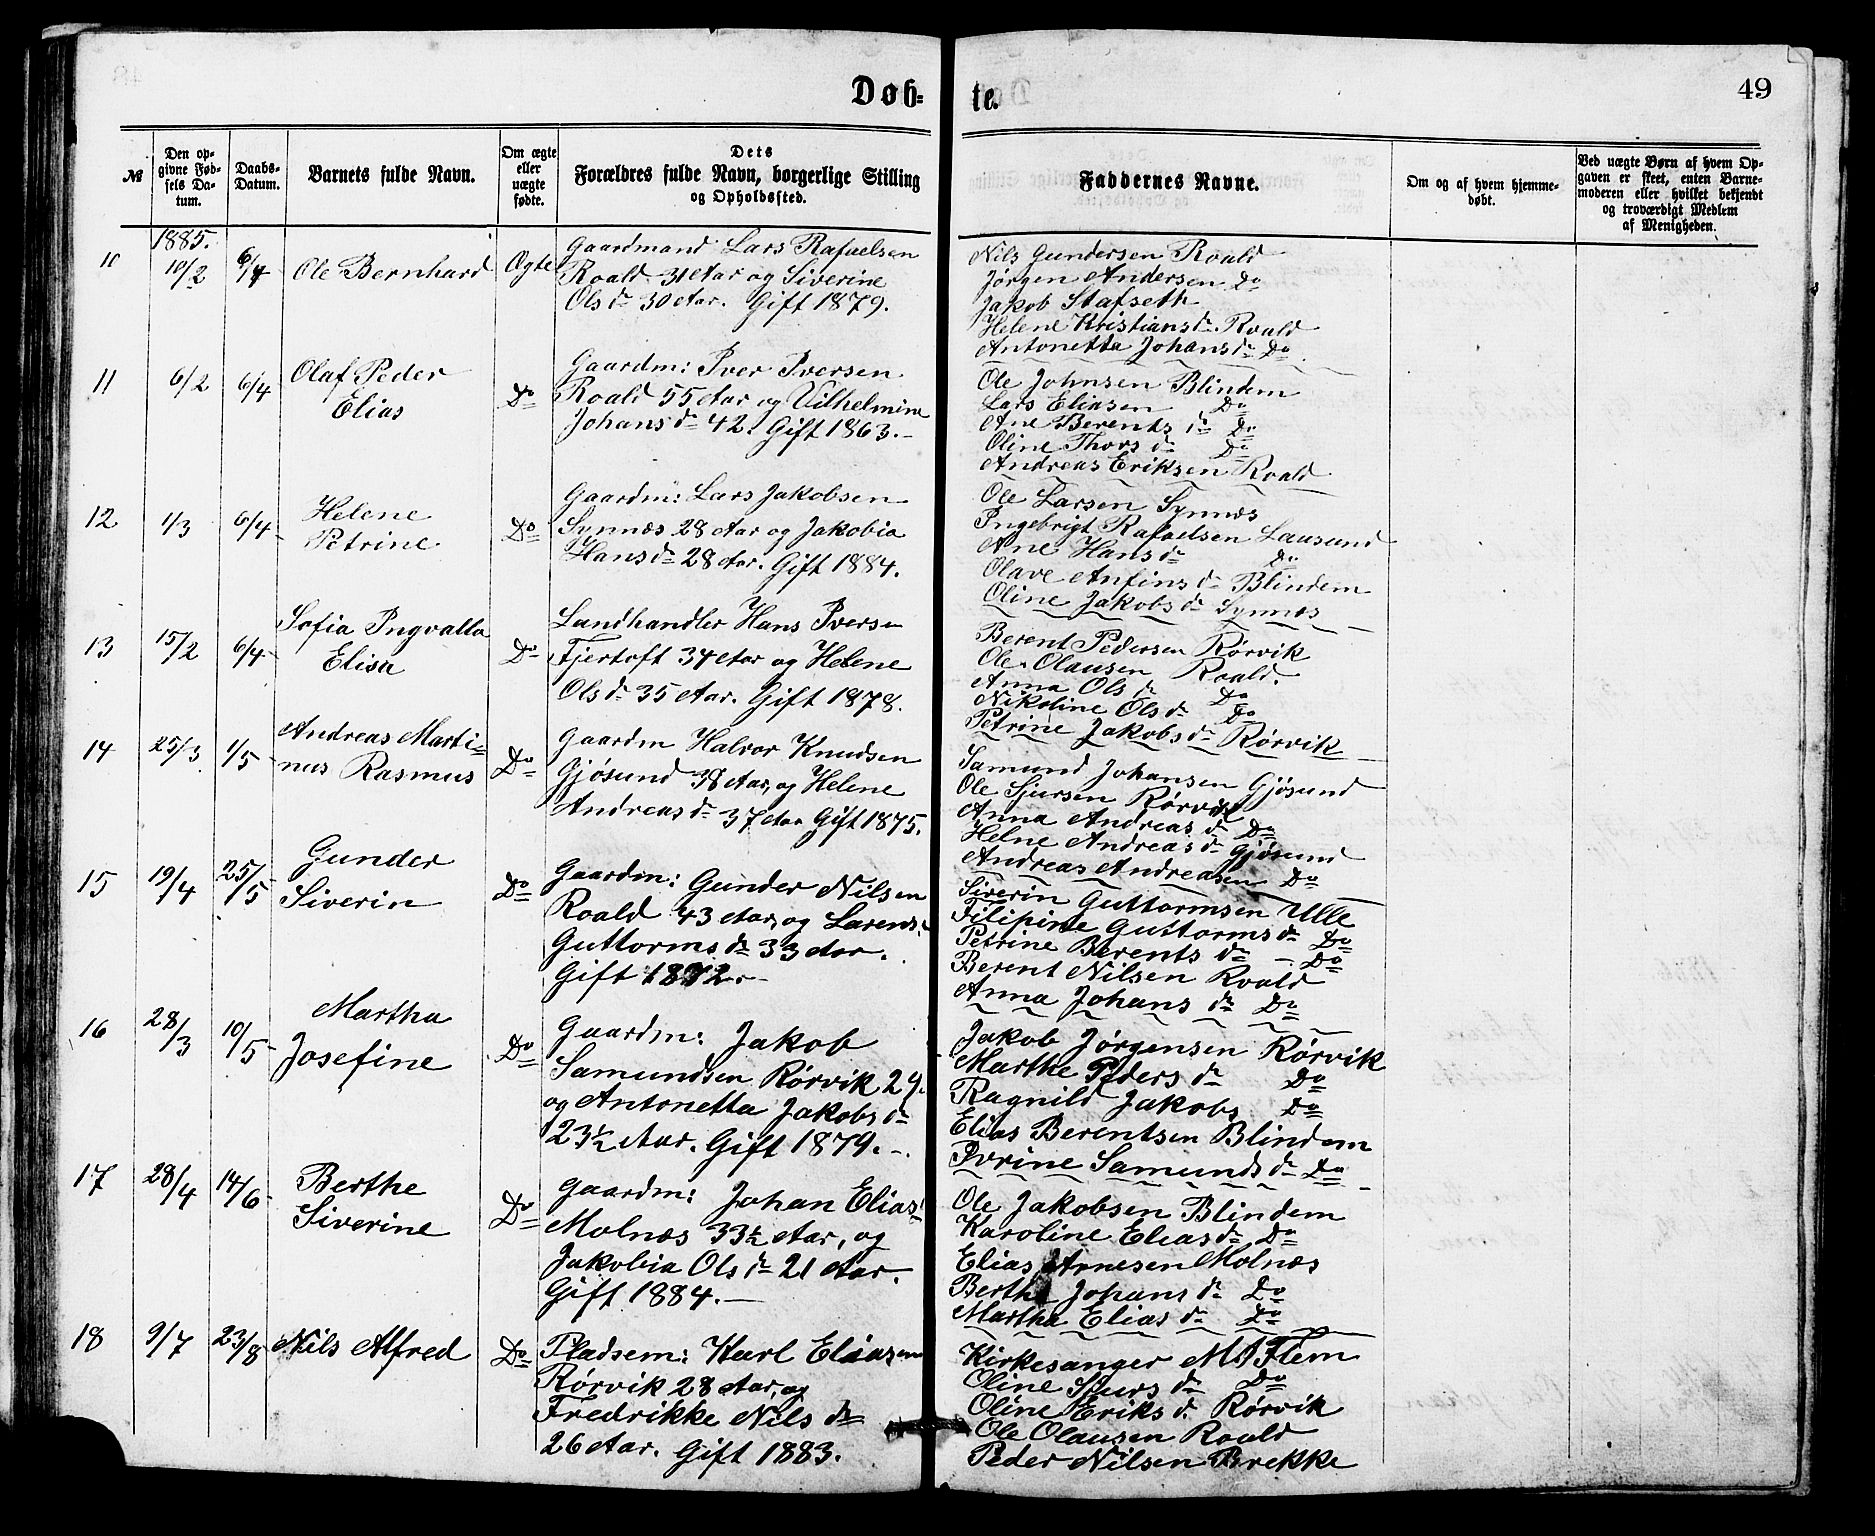 Døb-
te.
49
№
Den op-
givne Fød-
sels Da-
tum.
Daabs-
Datum.
Barnets fulde Navn.
Om ægte
eller
uægte
fødte.
Dets
Forældres fulde Navn, borgerlige Stilling
og Opholdssted.
Faddernes Navne.
Om og af hvem hjemme-
døbt.
Ved uægte Børn af hvem Op-
gaven er skeet, enten Barne-
moderen eller hvilket bekjendt
og troværdigt Medlem
af Menigheden.
1885.
10
10/2
6/4
Ole Bernhard
Ægte
Gaardmand Lars Rafaelsen
Roald 31 Aar og Siverine
Ols d. 30 Aar. Gift 1879.
Nils Gundersen Roald
Jørgen Andersen Do
Jakob Stafseth
Helene Kristians d. Roald
Antonetta Johans d. Do
11
6/2
6/4
Olaf Peder
Elias
Do
Gaardm: Iver Iversen
Roald 55 Aar og Vilhelmine
Johans d. 42. Gift 1863.-
Ole Johnsen Blindem
Lars Eliasen Do
Ane Berents d. Do
Oline Thors d. Do
Andreas Eriksen Roald
12
1/3
6/4
Helene
Petrine
Do
Gaardm: Lars Jakobsen
Synnes 28 Aar og Jakobia
Hans d. 28 Aar. Gift 1884.
Ole Larsen Synnes
Ingebrigt Rafaelsen Lausund
Ane Hans d. Do
Olave Anfins d. Blindem
Oline Jakobs d. Synnes
13
15/2
6/4
Sofia Ingvalla
Elisa
Do
Landhandler Hans Iversen
Fjertoft 34 Aar og Helene
Ols d. 35 Aar. Gift 1878.
Berent Pedersen Rørvik
Ole Olausen Roald.
Anna Ols d. Do
Nikoline Ols d. Do
Petrine Jakobs d. Rørvik
14
25/3
1/5
Andreas Marti-
nus Rasmus
Do
Gaardm Halvor Knudsen
Gjøsund 38 Aar, og Helene
Andreas d. 37 Aar Gift 1875.
Samund Johansen Gjøsund
Ole Sjursen Rørvik
Anna Andreas d. Do
Helne Andreas d. Gjøsund
Andreas Andreasen Do
15
19/4
25/5
Gunder
Siverin
Do
Gaardm: Gunder Nilsen
Roald 43 Aar, og Larens-
Guttorms d. 33 Aar.
Gift 1872.-
Siverin Guttormsen Ulle
Filipine Guttorms d. Do
Petrine Berents d. - Do
Berent Nilsen Roald
Anna Johans d. Do
16
28/3
10/5
Martha
Josefine
Do
Gaardm: Jakob
Samundsen Rørvik 29.
og Antonetta Jakobs d.
23½ Aar. Gift 1879.-.
Jakob Jørgensen Rørvik
Marthe Peders d. Do
Ragnild Jakobs Do
Elias Berentsen Blindem
Ivrine Samunds d. Do
17
28/4
14/6
Berthe
Siverine
Do
Gaardm: Johan Elias
Molnes 33½ Aar, og
Jakobia Ols d. 21 Aar.
Gift 1884.-
Ole Jakobsen Blindem
Karoline Elias d. Do
Elias Arnesen Molnes
Berthe Johans d. Do
Martha Elias d. Do
18
9/7
23/8
Nils Alfred
Do
Pladsem: Karl Eliasen
Rørvik 28 Aar, og
Fredrikke Nils d.
26 Aar. Gift 1883.
Kirkesanger Flem
Oline Sjurs d. Do
Oline Eriks d. Rørvik
Ole Olausen Roald
Peder Nilsen Brekke